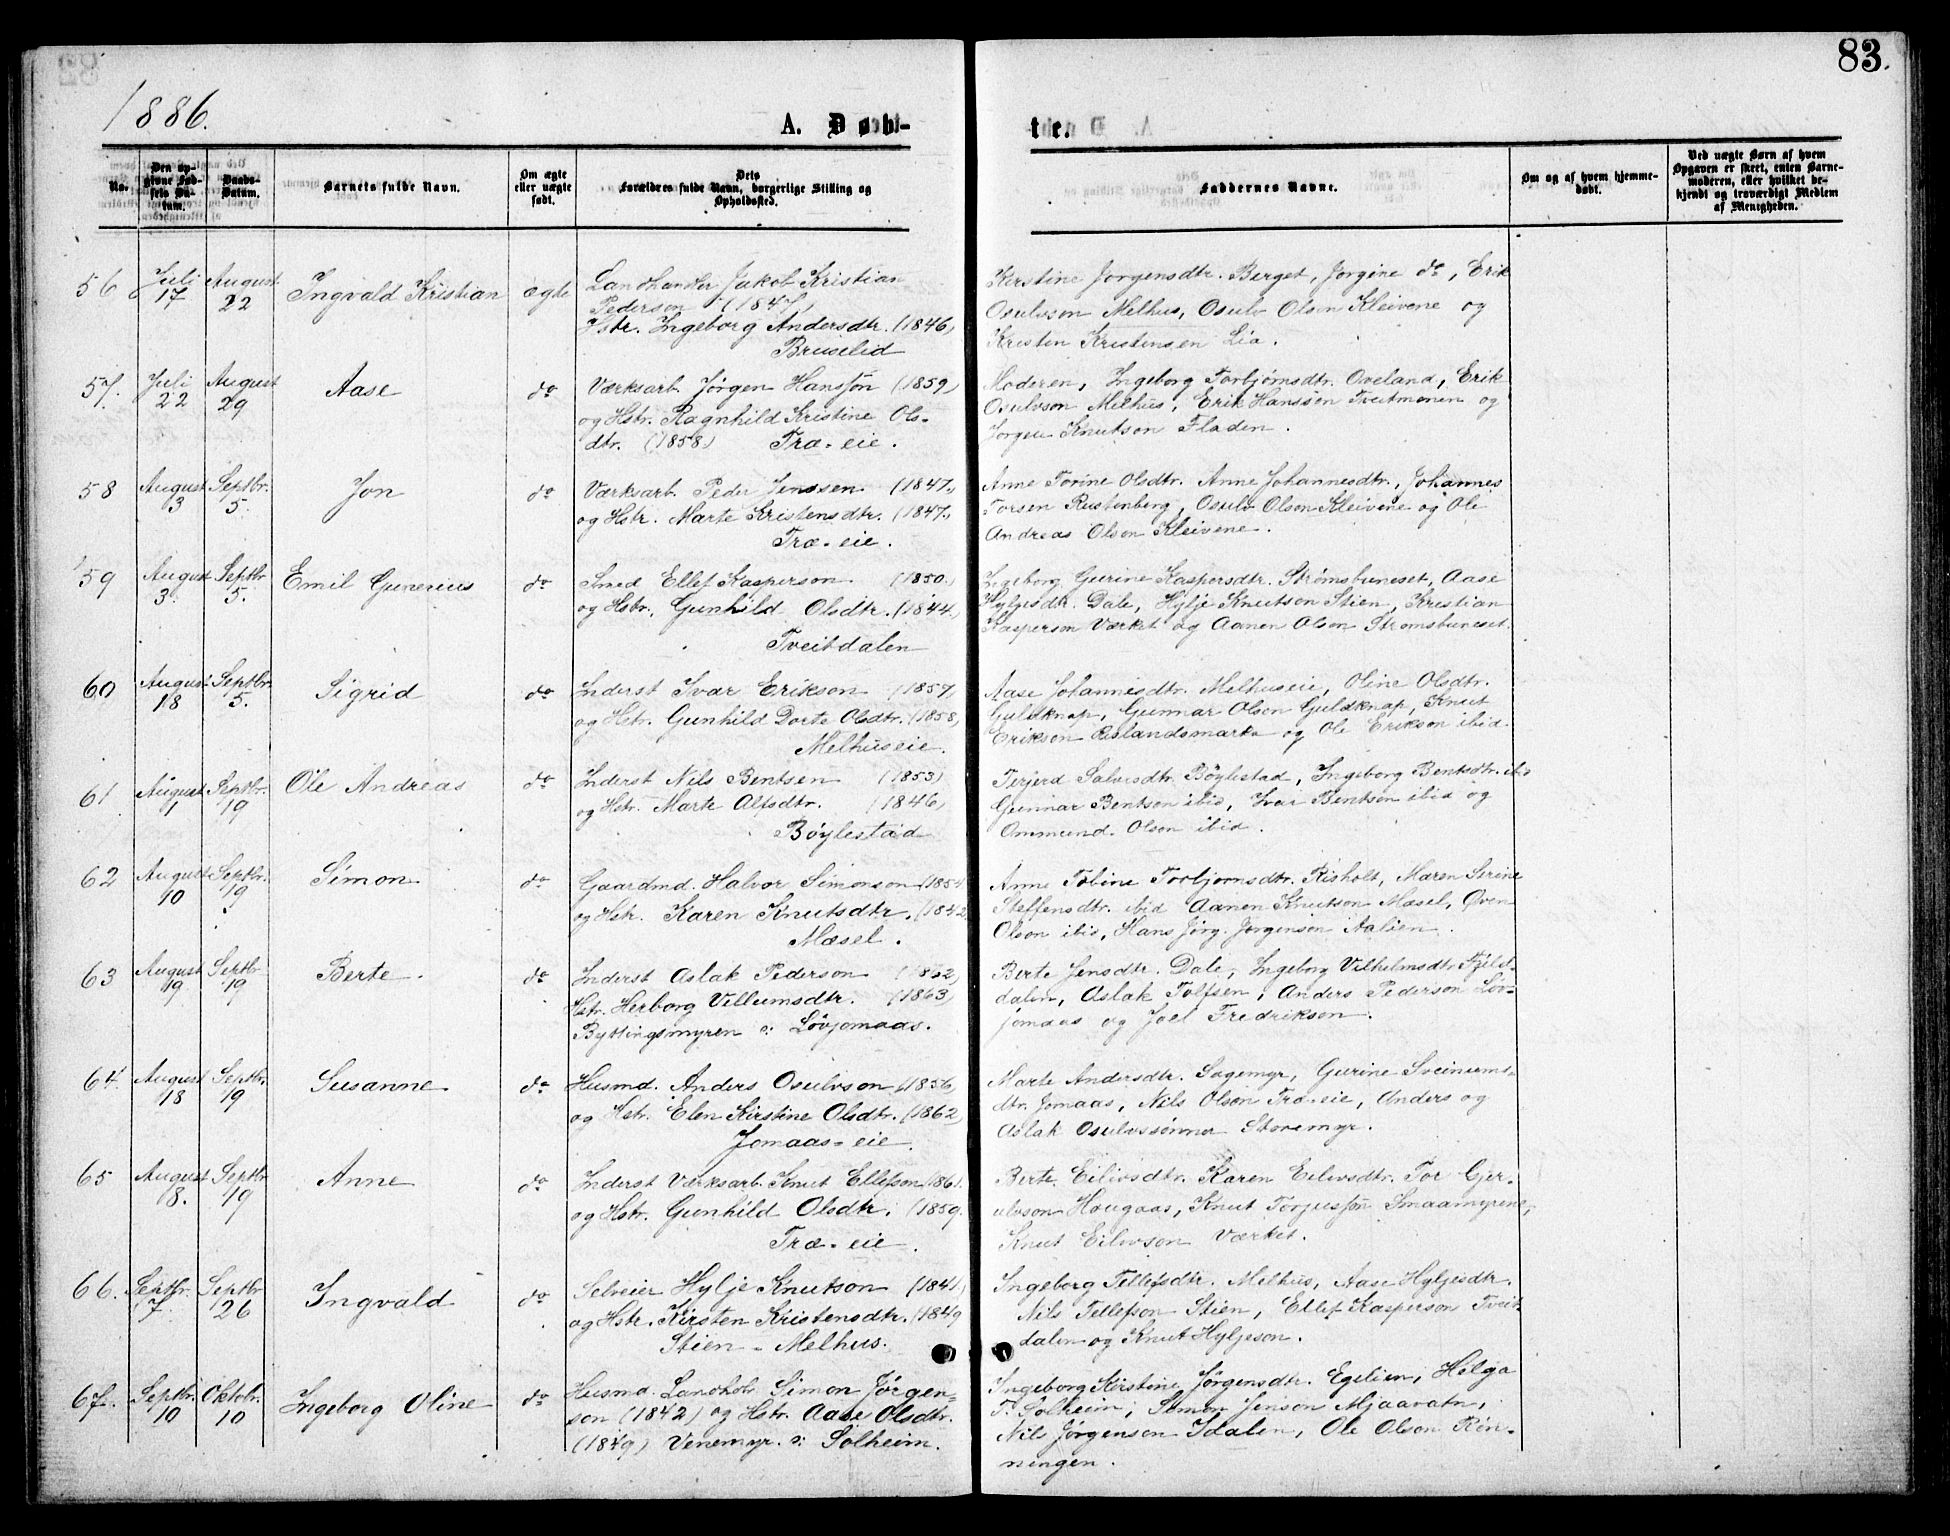 83.
1886.
A. Døb-
te.
No.
Den op-
givne Fød-
sels Da-
tum.
Daabs-
Datum.
Barnets fulde Navn.
Om ægte
eller uægte
født.
Dets
Forældres fulde Navn, borgerlige Stilling og
Opholdssted.
Faddernes Navne.
Om og af hvem hjemme-
døbt.
Ved uægte Børn af hvem
Opgaven er skeet, enten Barne-
moderen, eller hvilket be-
kjendt og troværdigt Medlem
af Menigheden.
56 Juli 17 August 22 Ingvald Kristian ægte
Landhandler Jakob Kristian
Pederson (1847)
Hstr. Ingeborg Andersdtr. (1846)
Bruselid
Kirstine Jørgensdtr. Berget, Jorgine do, Erik
Osulvson Melhus, Osulv Olson Kleivene og
Kristen Kristensen Lia.
57. Juli 22 August 29 Aase do
Værksarb. Jørgen Hansson (1859)
og Hstr. Ragnhild Kristine Ols-
dtr. (1858) Træ-eie.
Moderen, Ingeborg Torbjørnsdtr. Oveland, Erik
Osulvson Melhus, Erik Hansson Tveitmonen og
Jorgen Knutson Fladen.
58 August 3 Septbr. 5. Jon do
Værksarb. Peder Jenssen (1847)
og Hstr. Marte Kristensdtr. (1847)
Træ-eie.
Anne Torine Olsdtr. Anne Johannesdtr., Johannes
Torsen Rustenberg, Osulv Olson Kleivene og Ole
Andreas Olson Kleivene.
59 August 3. Septbr 5. Emil Gunerius do
Smed Ellef Kasperson (1850)
og Hstr. Gunhild Olsdtr. (1844)
Tveitdalen
Ingeborg Gurine Kaspersdtr. Strømsbuneset, Aase
Hyljesdtr. Dale, Hylje Knutson Stien, Kristian
Kasperson Værket og Aanen Olson Stromsbuneset.
60 August 18 Septbr. 5. Sigrid do
Inderst Ivar Erikson (1857)
og Hstr. Gunhild Dorte Olsdtr. (1858)
Melhuseie.
Aase Johannesdtr. Melhuseie, Oline Olsdtr.
Guldknap, Gunnar Olson Guldknap, Knut
Erikson Rislandsmarka og Ole Erikson ibid.
61 August 1 Septbr. 19 Ole Andreas do
Inderst Nils Bentsen (1853)
og Hstr. Marte Alfsdtr. (1846)
Bøylestad
Terjerd Salvesdtr. Bøylestad, Ingeborg Bentsdtr. ibid
Gunnar Bentson ibid, Ivar Bentson ibid og
Ommund Olson ibid.
62 August 10 Septbr. 19 Simon do
Gaardmd. Halvor Simonson (1854
og Hstr. Karen Knutsdtr. (1842
Mæsel.
Anne Tobine Torbjornsdtr. Risholt, Maren Serine
Steffensdtr. ibid Aanen Knutson Mæsel, Øven
Olson ibid, Hans Jørg. Jørgenson Aalien.
63 August 19 Septbr 19 Berte do
Inderst Aslak Pederson (1862)
Hstr. Herborg Villumsdtr. (1863)
Byttingsmyren o: Løvjomaas.
Berte Jensdtr. Dale, Ingeborg Vilhelmsdtr. Fjelst-
dalen, Aslak Tolfsen, Anders Pederson Løv-
jomaas og Joel Fredrikson.
64 August 18 Septbr. 19 Susanne do
Husmd. Anders Osulvson (1856)
og Hstr. Elen Kirstine Olsdtr. (1862)
Jomaas-eie.
Marte Andersdtr. Sagemyr, Gurine Sveinums-
dtr. Jomaas, Nils Olson Træ-eie, Anders og
Aslak Osulvssønner Storemyr.
65 August 18. Septbr 19 Anne do
Inderst Værksarb. Knut Ellefson (1861.
og Hstr. Gunhild Olsdtr. (1859.
Træ-eie.
Berte Eilivsdtr. Karen Eilivsdtr. Tor Gjer-
ulvson Hougaas, Knut Torjusson Smaamyrene,
Knut Eilivson Værket.
66. Septbr. 7. Septbr 26 Ingvald do
Selveier Hylje Knutson (1841)
og Hstr. Kirsten Kristensdtr. (1849
Stien - Melhus.
Ingeborg Tellefsdtr. Melhus, Aase Hyljesdtr.
Nils Tellefson Stien, Ellef Kasperson Tveit-
dalen og Knut Hyljeson.
67. Septbr. 10 Oktobr. 10 Ingeborg Oline do
Husmd. Landhdr. Simon Jørgen-
son (1842) og Hstr. Aase Olsdtr.
(1849) Venemyr. o: Solheim.
Ingeborg Kirstine Jørgensdtr. Egelien, Helga
T. Solheim, Simon Jenson Mjaavatn,
Nils Jørgenson Idalen, Ole Olson Røn-
ningen.